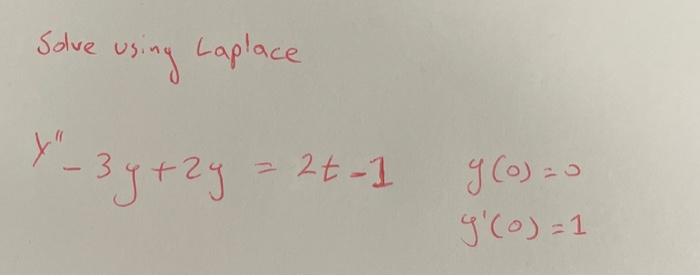 Solve using Laplace
y" - 3y + 2y = 2t - 1 y(0) = 0
y'(0) = 1